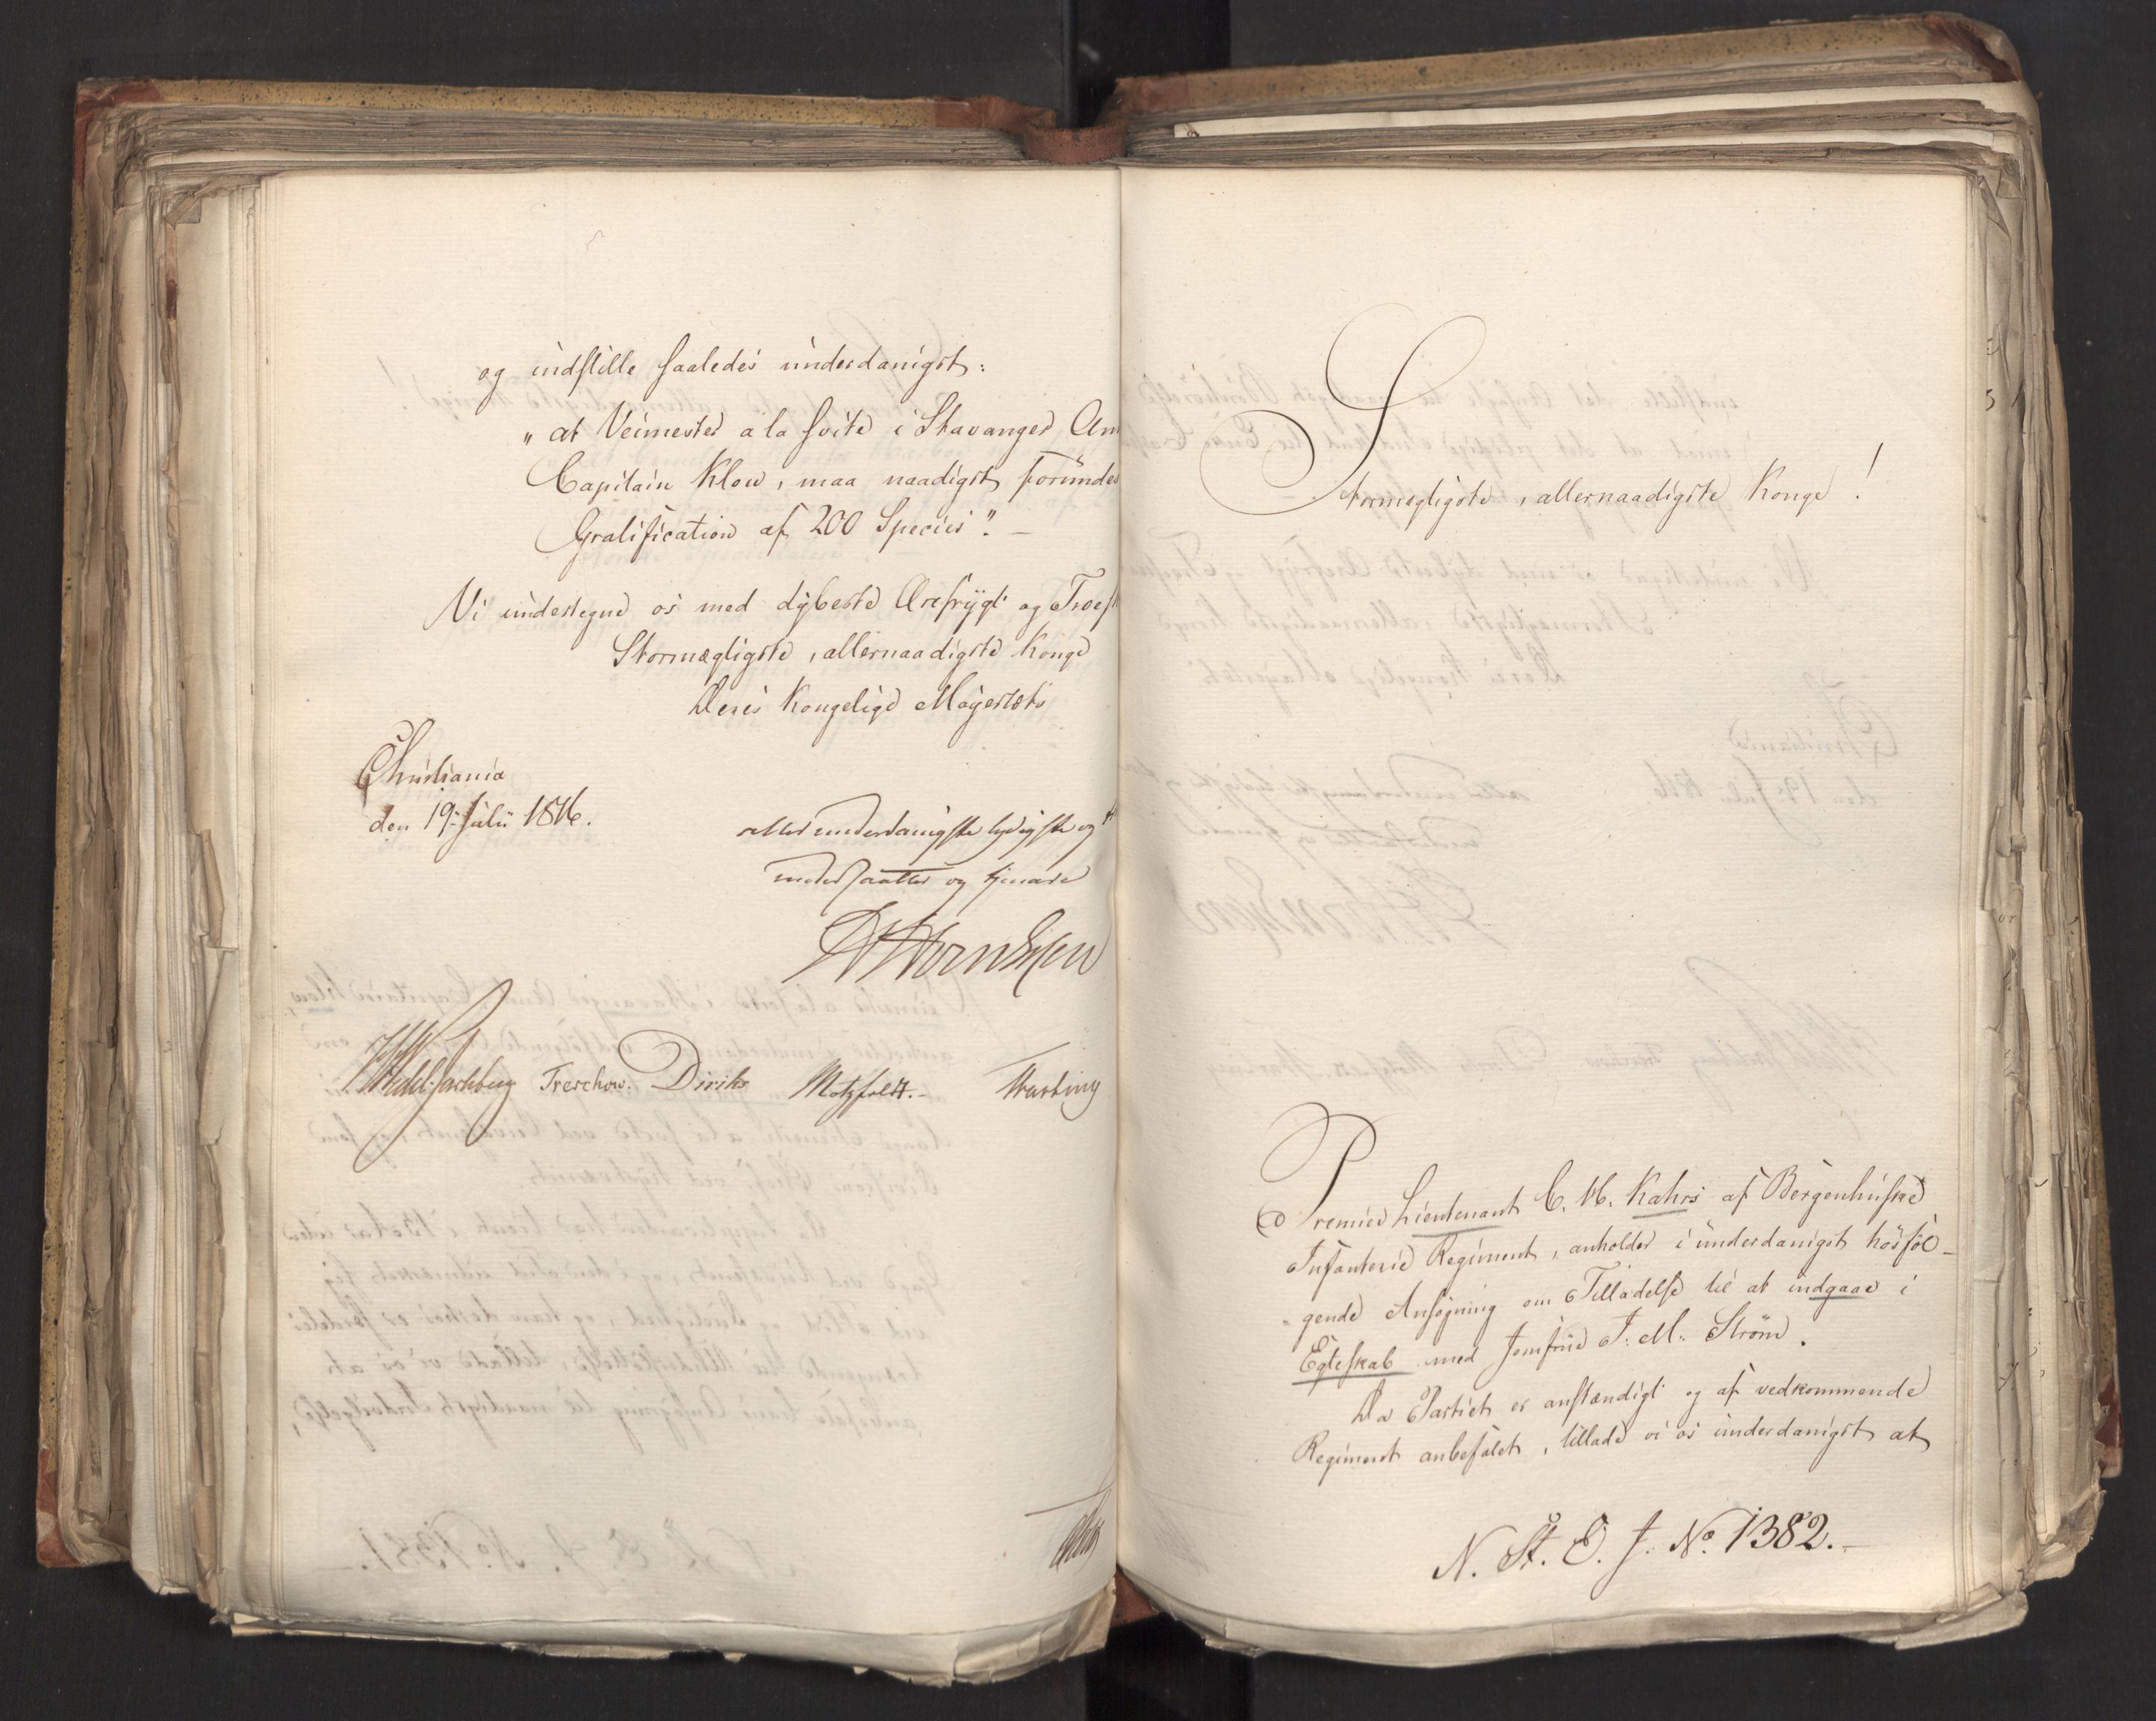 og indstille saaledes underdanigst:
„at Veimester a la suite i Stavanger Am
Capitain Klow, maa naadigst forundes
Gratification af 200 Species". –
Vi undertegne os med dybeste Ærefrygt og Troes
Stormægtigste, allernaadigste Konge
Deres Kongelige Majestæts
Christiania
den 19. Julii 1816.
allerunderdanigste lydigste og
undersaatter og tjenere
Wedel-Jarlsberg Treschow. Diriks Motzfeldt. –
Stormægtigste, allernaadigste Konge!
Premier Lieutenant C. M. Kahrs af Bergenhuske
Infanterie Regiment, anholder i underdanigst hosføl-
gende Ansøgning om Tilladelse til at indgaae i
Egteskab med Jomfrue J. M. Strøm.
Da Partiet er anstændigt og af vedkommende
Regiment anbefalet, tillade vi os underdanigst at
N. St. E. J. No 1382. –